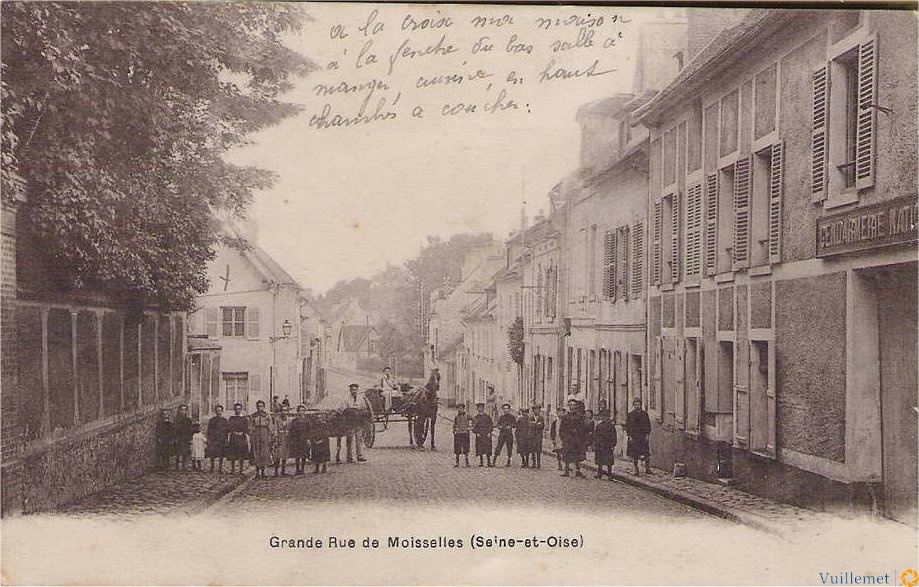 a la croix ma maison
à la fenetre du bas salle à
manger, cuisine, en haut
chambres a coucher.
GENDARMERIE NAT
Grande Rue de Moisselles (Seine-et-Oise)
Vuillemet